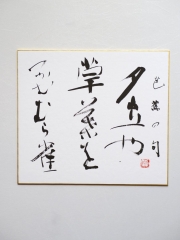 蕪村の句
夕立や
草葉を
つかむむら雀